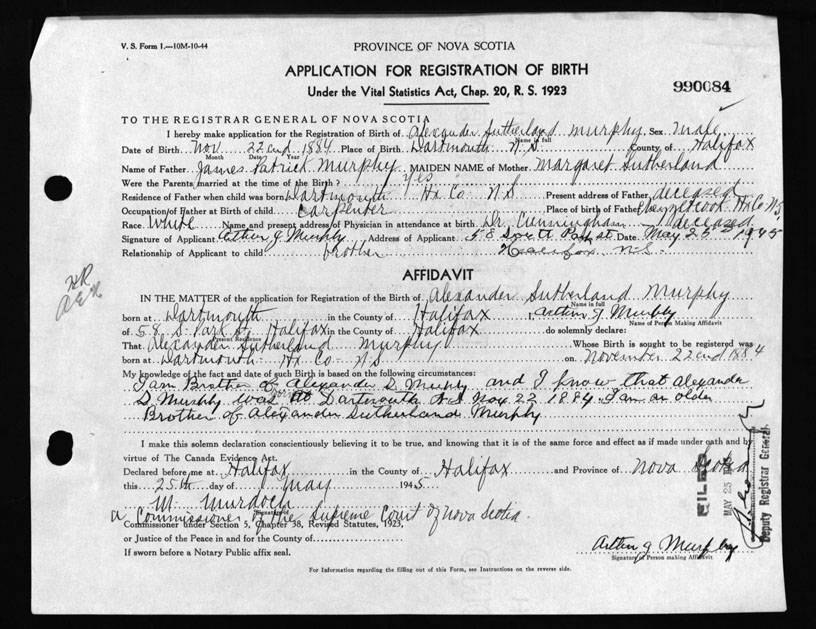 V. S. Form 1.—10M-10-44
PROVINCE OF NOVA SCOTIA
APPLICATION FOR REGISTRATION OF BIRTH
Under the Vital Statistics Act, Chap. 20, R. S. 1923
990084
TO THE REGISTRAR GENERAL OF NOVA SCOTIA
I hereby make application for the Registration of Birth of Alexander Sutherland Murphy Sex Male
Name in full
Date of Birth Nov 22nd 1884 Place of Birth Dartmouth N.S. County of Halifax
Month Date Year
Name of Father James Patrick Murphy MAIDEN NAME of Mother Margaret Sutherland
Were the Parents married at the time of the Birth? yes
Residence of Father when child was born Dartmouth Hx Co N S Present address of Father deceased
Occupation of Father at Birth of child Carpenter Place of birth of Father Hx Co N.S.
Race White Name and present address of Physician in attendance at birth Dr. Cunningham deceased
Signature of Applicant Arthur J Murphy Address of Applicant 58 South Park St. Date May 25 1945
Relationship of Applicant to child brother Halifax N.S.
AFFIDAVIT
IN THE MATTER of the application for Registration of the Birth of Alexander Sutherland Murphy
Name in full
born at Dartmouth in the County of Halifax I, Arthur J Murphy
Name of Person Making Affidavit
of 58 S. Park St Halifax in the County of Halifax do solemnly declare:
Present Residence
That Alexander Sutherland Murphy Whose Birth is sought to be registered was
born at Dartmouth Hx Co N S on November 22nd 1884
My knowledge of the fact and date of such Birth is based on the following circumstances:
I am Brother of Alexander S. Murphy and I know that Alexander
S. Murphy was at Dartmouth N S Nov 22 1884. I am an older
Brother of Alexander Sutherland Murphy
I make this solemn declaration conscientiously believing it to be true, and knowing that it is of the same force and effect as if made under oath and by
virtue of The Canada Evidence Act.
Declared before me at Halifax in the County of Halifax and Province of Nova Scotia
this 25th day of May 1945
M. Murdoch
a Commissioner of the Supreme Court of Nova Scotia.
Commissioner under Section 5, Chapter 38, Revised Statutes, 1923,
or Justice of the Peace in and for the County of
If sworn before a Notary Public affix seal.
Arthur J Murphy
Signature of Person making Affidavit
For Information regarding the filling out of this Form, see Instructions on the reverse side.
FILED
MAY 25
Deputy Registrar General.